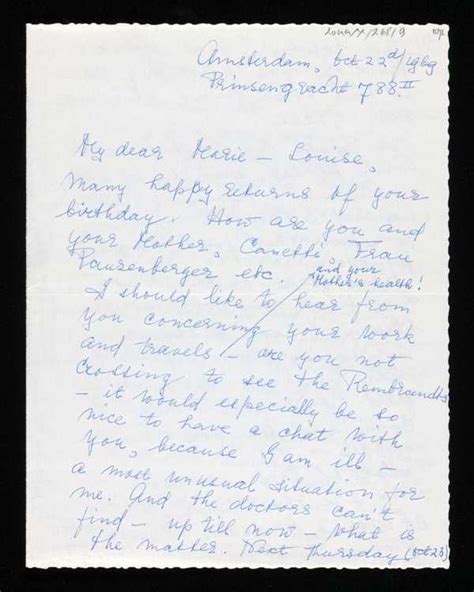 Amsterdam, Oct 22d/1969
Prinsengracht 788 II
My dear Marie - Louise,
Many happy returns of your
birthday. How are you and
your Mother, Canetti, Frau
etc.
and your
Mother's health!
I should like to hear from
you concerning your work
and travels - are you not
crossing to see the Rembrandts
- it would especially be so
nice to have a chat with
you, because I am ill -
a most unusual situation for
me. And the doctors can't
find - up till now - what is
the matter. Next Thursday (Oct 23)